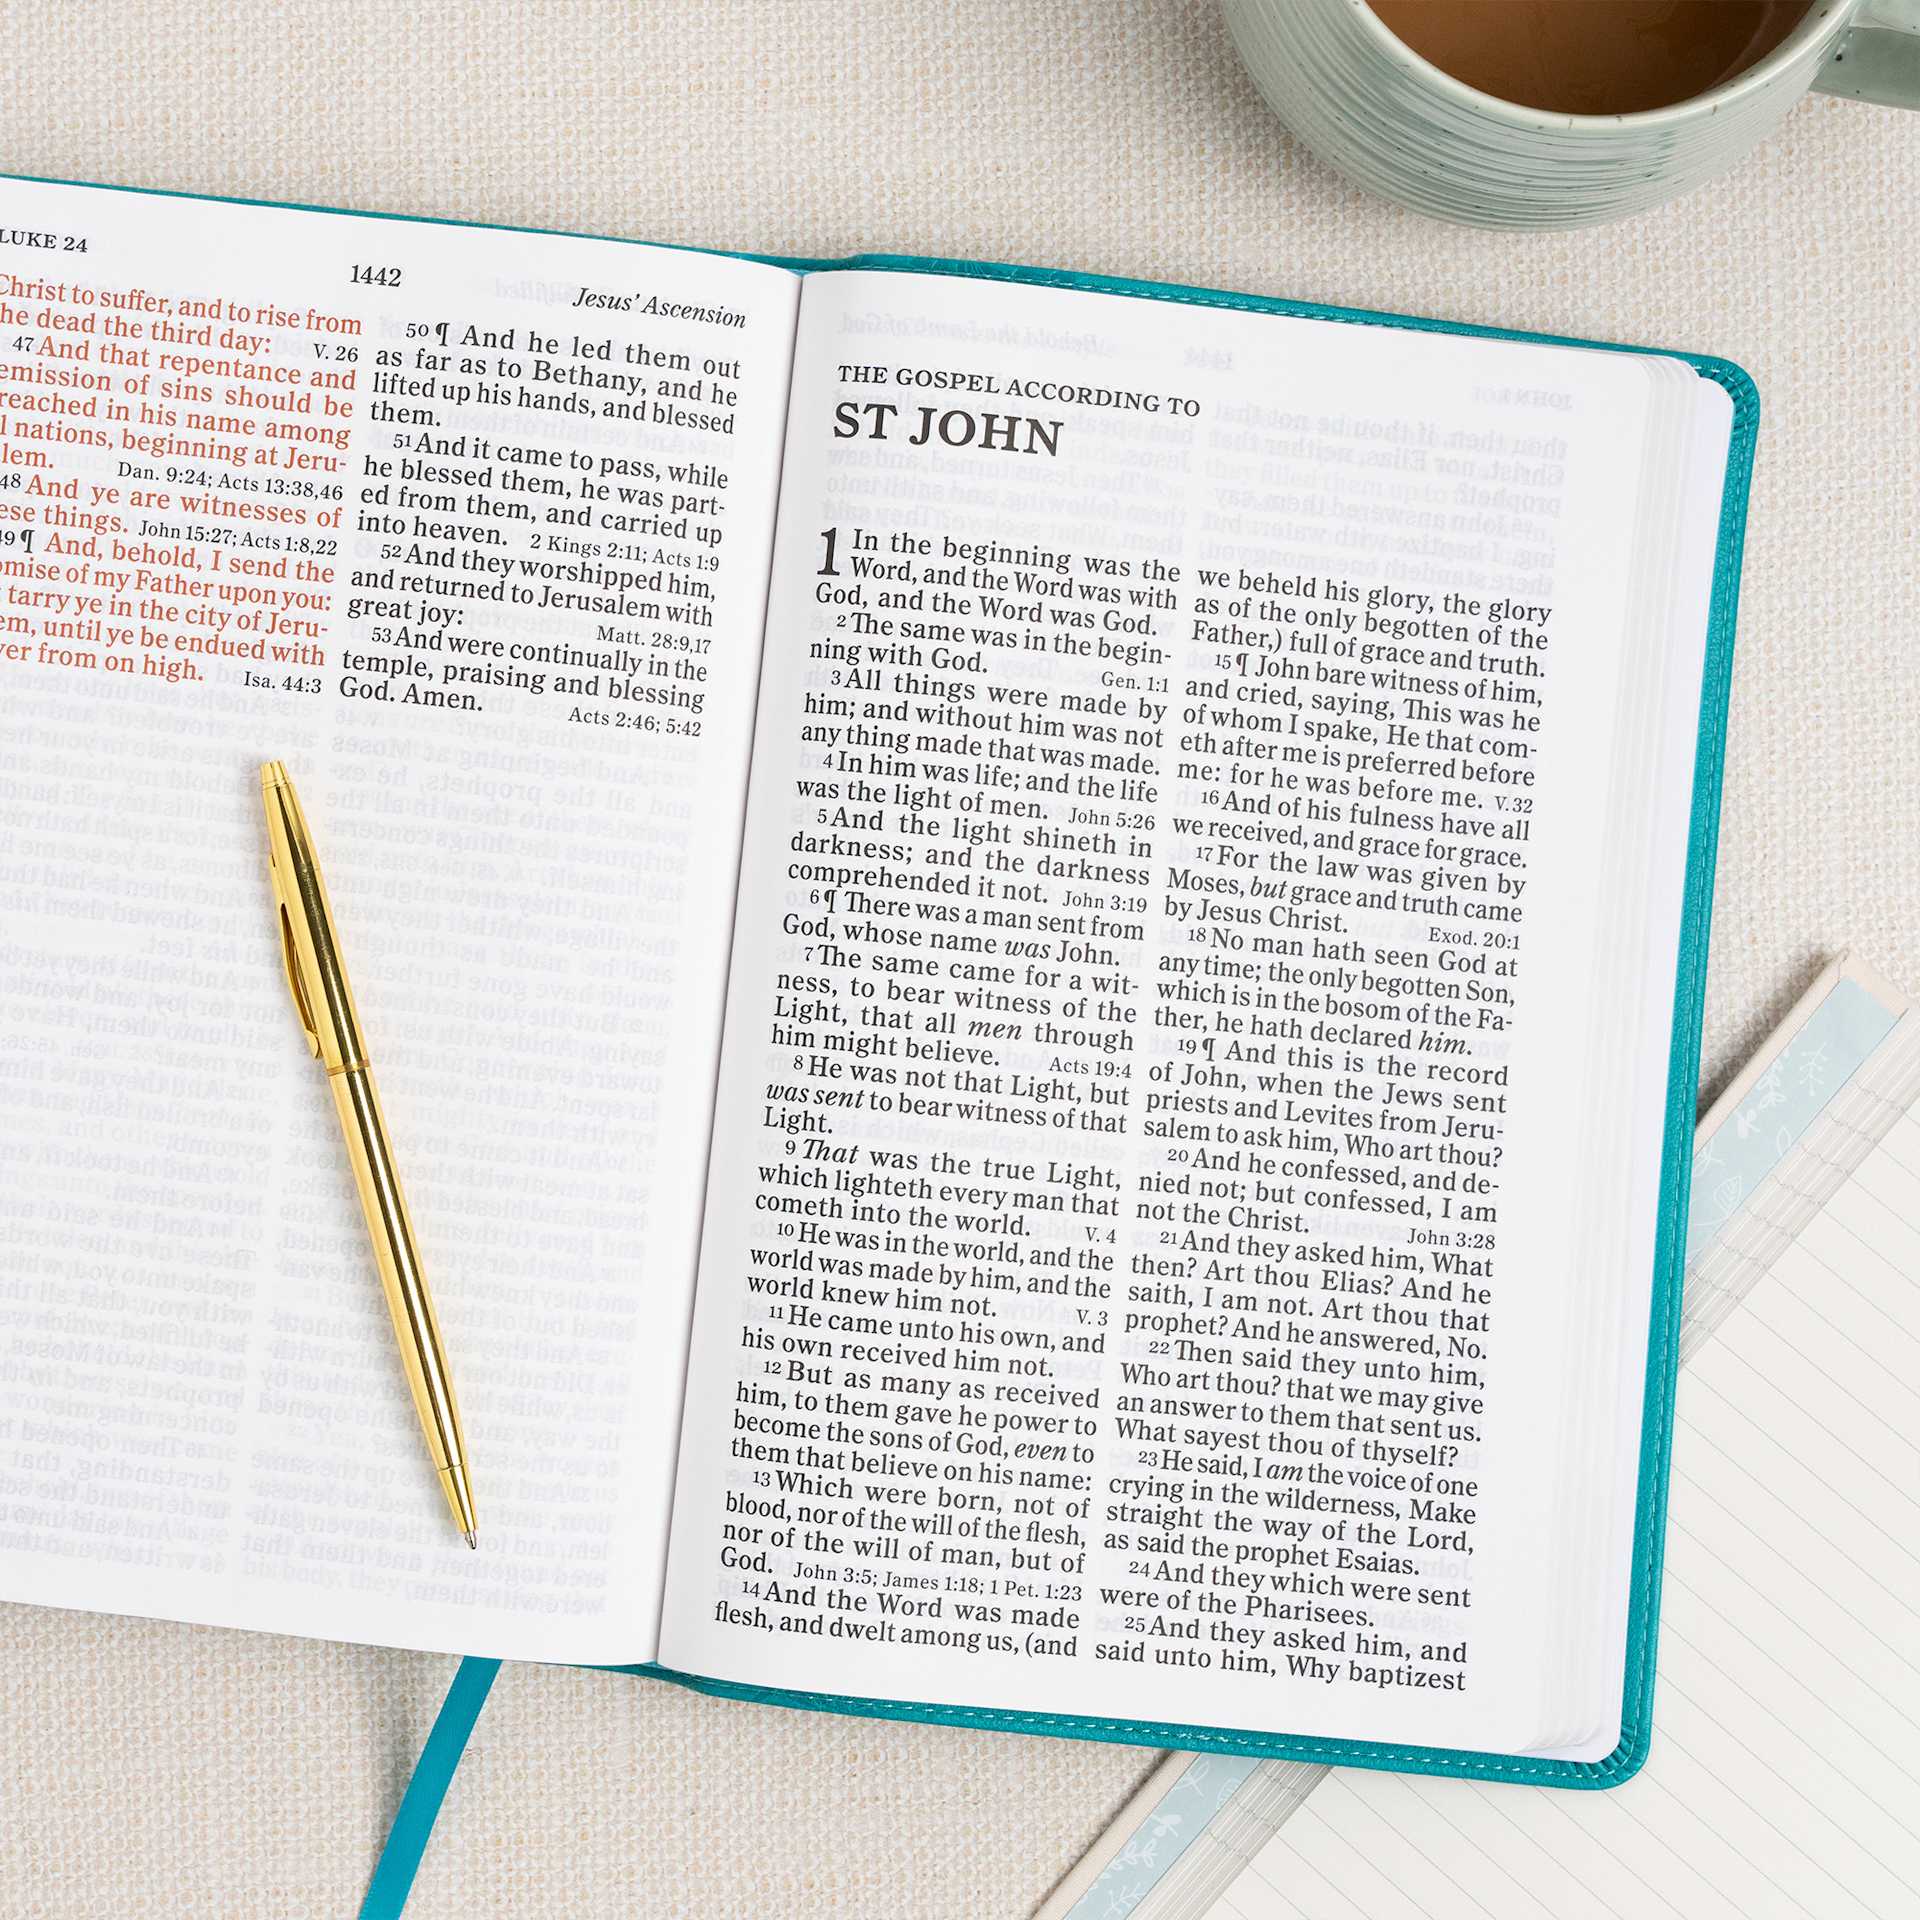 LUKE 24
1442
Jesus' Ascension
Christ to suffer, and to rise from
the dead the third day:
V. 26
47 And that repentance and
emission of sins should be
reached in his name among
l nations, beginning at Jeru-
lem.
Dan. 9:24; Acts 13:38,46
48 And ye are witnesses of
ese things. John 15:27; Acts 1:8,22
49 ¶ And, behold, I send the
omise of my Father upon you:
tarry ye in the city of Jeru-
em, until ye be endued with
wer from on high.
Isa. 44:3
50 ¶ And he led them out
as far as to Bethany, and he
lifted up his hands, and blessed
them.
51 And it came to pass, while
he blessed them, he was part-
ed from them, and carried up
into heaven. 2 Kings 2:11; Acts 1:9
52 And they worshipped him,
and returned to Jerusalem with
great joy:
Matt. 28:9,17
53 And were continually in the
temple, praising and blessing
God. Amen.
Acts 2:46; 5:42
THE GOSPEL ACCORDING TO
ST JOHN
1 In the beginning was the
Word, and the Word was with
God, and the Word was God.
2 The same was in the begin-
ning with God.
Gen. 1:1
3 All things were made by
him; and without him was not
any thing made that was made.
4 In him was life; and the life
was the light of men. John 5:26
5 And the light shineth in
darkness; and the darkness
comprehended it not. John 3:19
6 ¶ There was a man sent from
God, whose name was John.
7 The same came for a wit-
ness, to bear witness of the
Light, that all men through
him might believe. Acts 19:4
8 He was not that Light, but
was sent to bear witness of that
Light.
9 That was the true Light,
which lighteth every man that
cometh into the world. V. 4
10 He was in the world, and the
world was made by him, and the
world knew him not. V. 3
11 He came unto his own, and
his own received him not.
12 But as many as received
him, to them gave he power to
become the sons of God, even to
them that believe on his name:
13 Which were born, not of
blood, nor of the will of the flesh,
nor of the will of man, but of
God. John 3:5; James 1:18; 1 Pet. 1:23
14 And the Word was made
flesh, and dwelt among us, (and
we beheld his glory, the glory
as of the only begotten of the
Father,) full of grace and truth.
15 ¶ John bare witness of him,
and cried, saying, This was he
of whom I spake, He that com-
eth after me is preferred before
me: for he was before me. V.32
16 And of his fulness have all
we received, and grace for grace.
17 For the law was given by
Moses, but grace and truth came
by Jesus Christ.
Exod. 20:1
18 No man hath seen God at
any time; the only begotten Son,
which is in the bosom of the Fa-
ther, he hath declared him.
19 ¶ And this is the record
of John, when the Jews sent
priests and Levites from Jeru-
salem to ask him, Who art thou?
20 And he confessed, and de-
nied not; but confessed, I am
not the Christ.
John 3:28
21 And they asked him, What
then? Art thou Elias? And he
saith, I am not. Art thou that
prophet? And he answered, No.
22 Then said they unto him,
Who art thou? that we may give
an answer to them that sent us.
What sayest thou of thyself?
23 He said, I am the voice of one
crying in the wilderness, Make
straight the way of the Lord,
as said the prophet Esaias.
24 And they which were sent
were of the Pharisees.
25 And they asked him, and
said unto him, Why baptizest